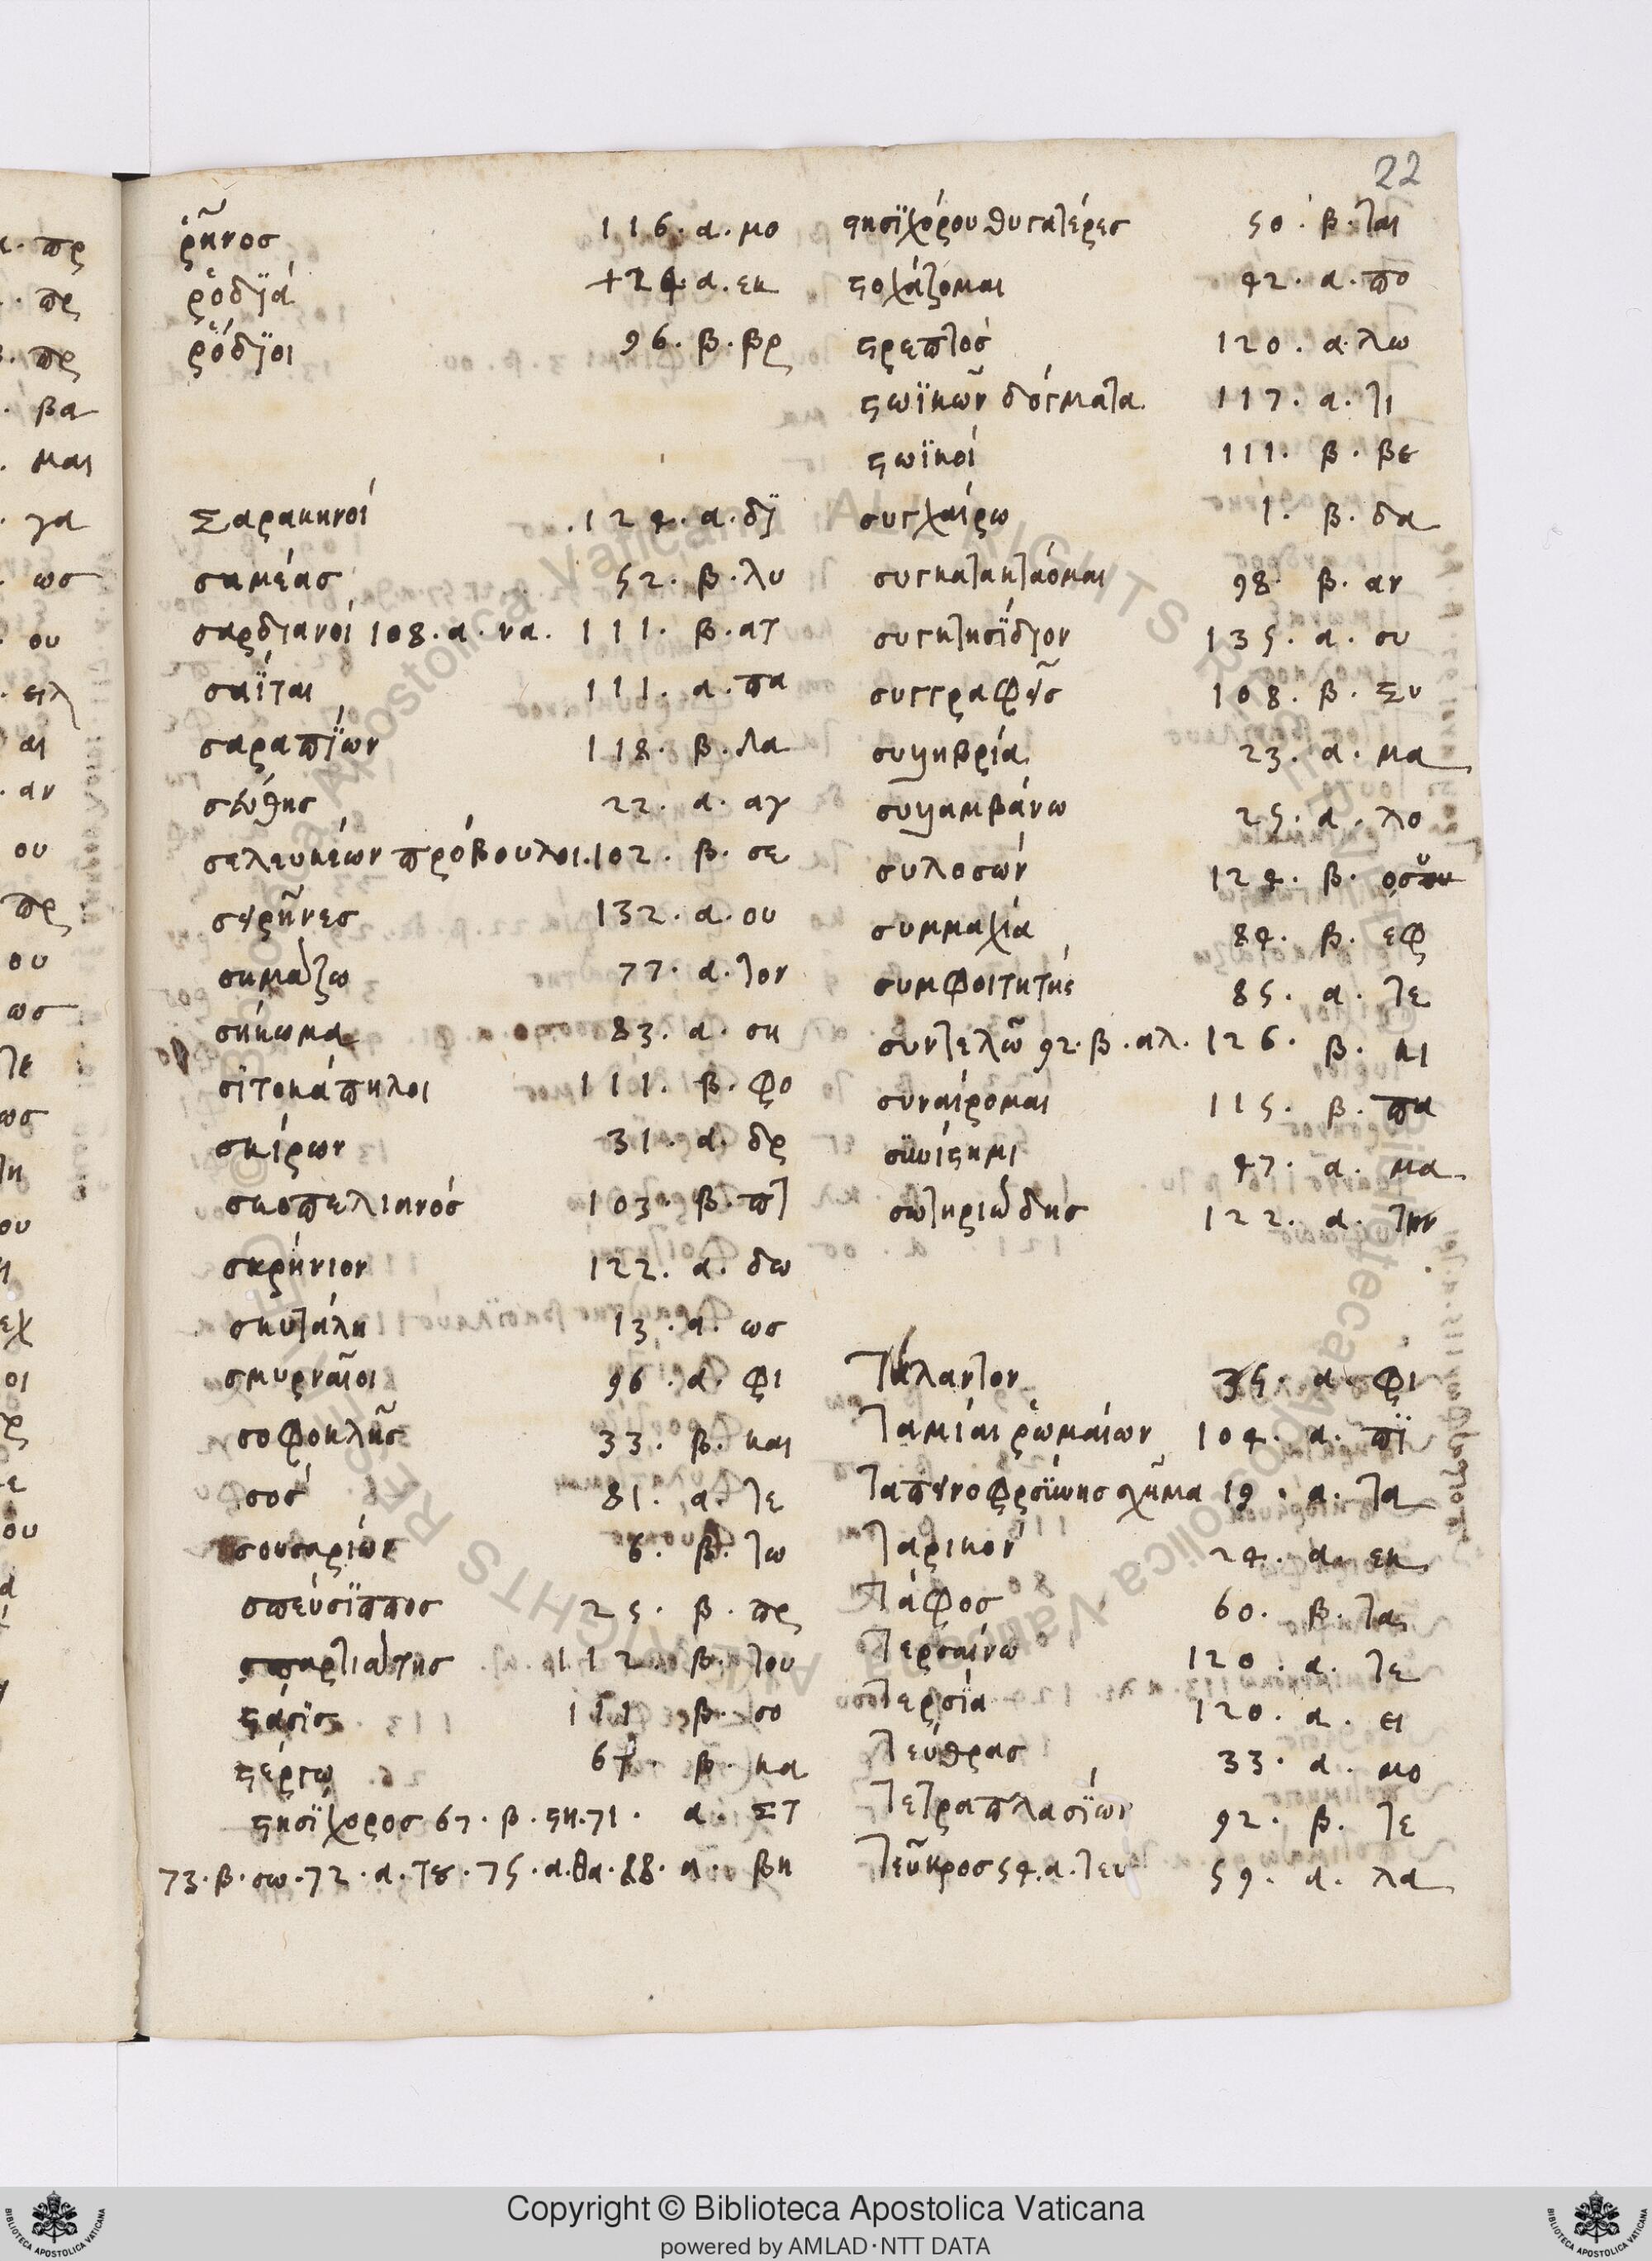 22
ῥῆνος 116. α. μο
ῥοδϊά +24. α. εκ
ῥόδϊοι 96. β. βρ
Σαρακηνοί .124. α. δϊ
σαμέας 52. β. λυ
σαρδιανοί 108. α. να. 111. β. ατ
σαΐται 111. α. πα
σαραπϊων 118. β. λα
σεύθης 22. α. αγ
σελευκέων πρόβουλοι. 102. β. σε
σειρῆνες 132. α. ου
σημάζω 77. α. τον
σήκωμα 83. α. ση
σϊτοκάπηλοι 111. β. φο
σκίρων 31. α. δρ
σκοπελιανός 103. β. πτ
σκρήνιον 122. α. δω
σκυτάλη 13. α. ωσ
σμυρναῖοι 96. α. φι
σοφοκλῆς 33. β. και
σος 81. α. τε
σουσαρίων 6. β. τω
σπεύσϊππος 25. β. πρ
σπαρτιάτης 112. β. του
στάσϊς 111. β. σο
στέργω 67. β. κα
στησϊχορος 67. β. στη. 71. α. Στ
73. β. σω. 72. α. του. 75. α. θα. 88. α. βη
στησϊχόρου θυγατέρες 50. β. ται
στοχάζομαι 42. α. πο
στρεπτός 120. α. λω
στωϊκῶν δόγματα 117. α. τι
στωϊκοί 111. β. βε
συγχαίρω 1. β. δα
συγκατακτάομαι 98. β. αν
συγκτησΐδιον 135. α. συ
συγγραφεῖς 108. β. Συ
συλληβρία 23. α. μα
συλλαμβάνω 25. α. λο
συλοσών 124. β. οσου
συμμαχία 84. β. εφ
συμφοιτητής 85. α. τε
συντελῶ 92. β. αλ. 126. β. κι
συναίρομαι 115. β. πα
συνίστημι 47. α. μα
σωτηριώδης 122. α. την
Τάλαντον 35. α. φι
Ταμίαι ῥωμαίων 104. α. πϊ
Ταπεινοφροσύνης σχῆμα 19. α. τα
Ταρικόν 24. α. εκ
Τάφος 60. β. τας
Τερσαίνω 120. α. τε
Τερσϊά 120. α. ει
Τεύθρας 33. α. μο
Τετραπλασϊων 92. β. τε
Τεῦκρος 54. α. τευ 59. α. λα
Copyright © Biblioteca Apostolica Vaticana
powered by AMLAD·NTT DATA